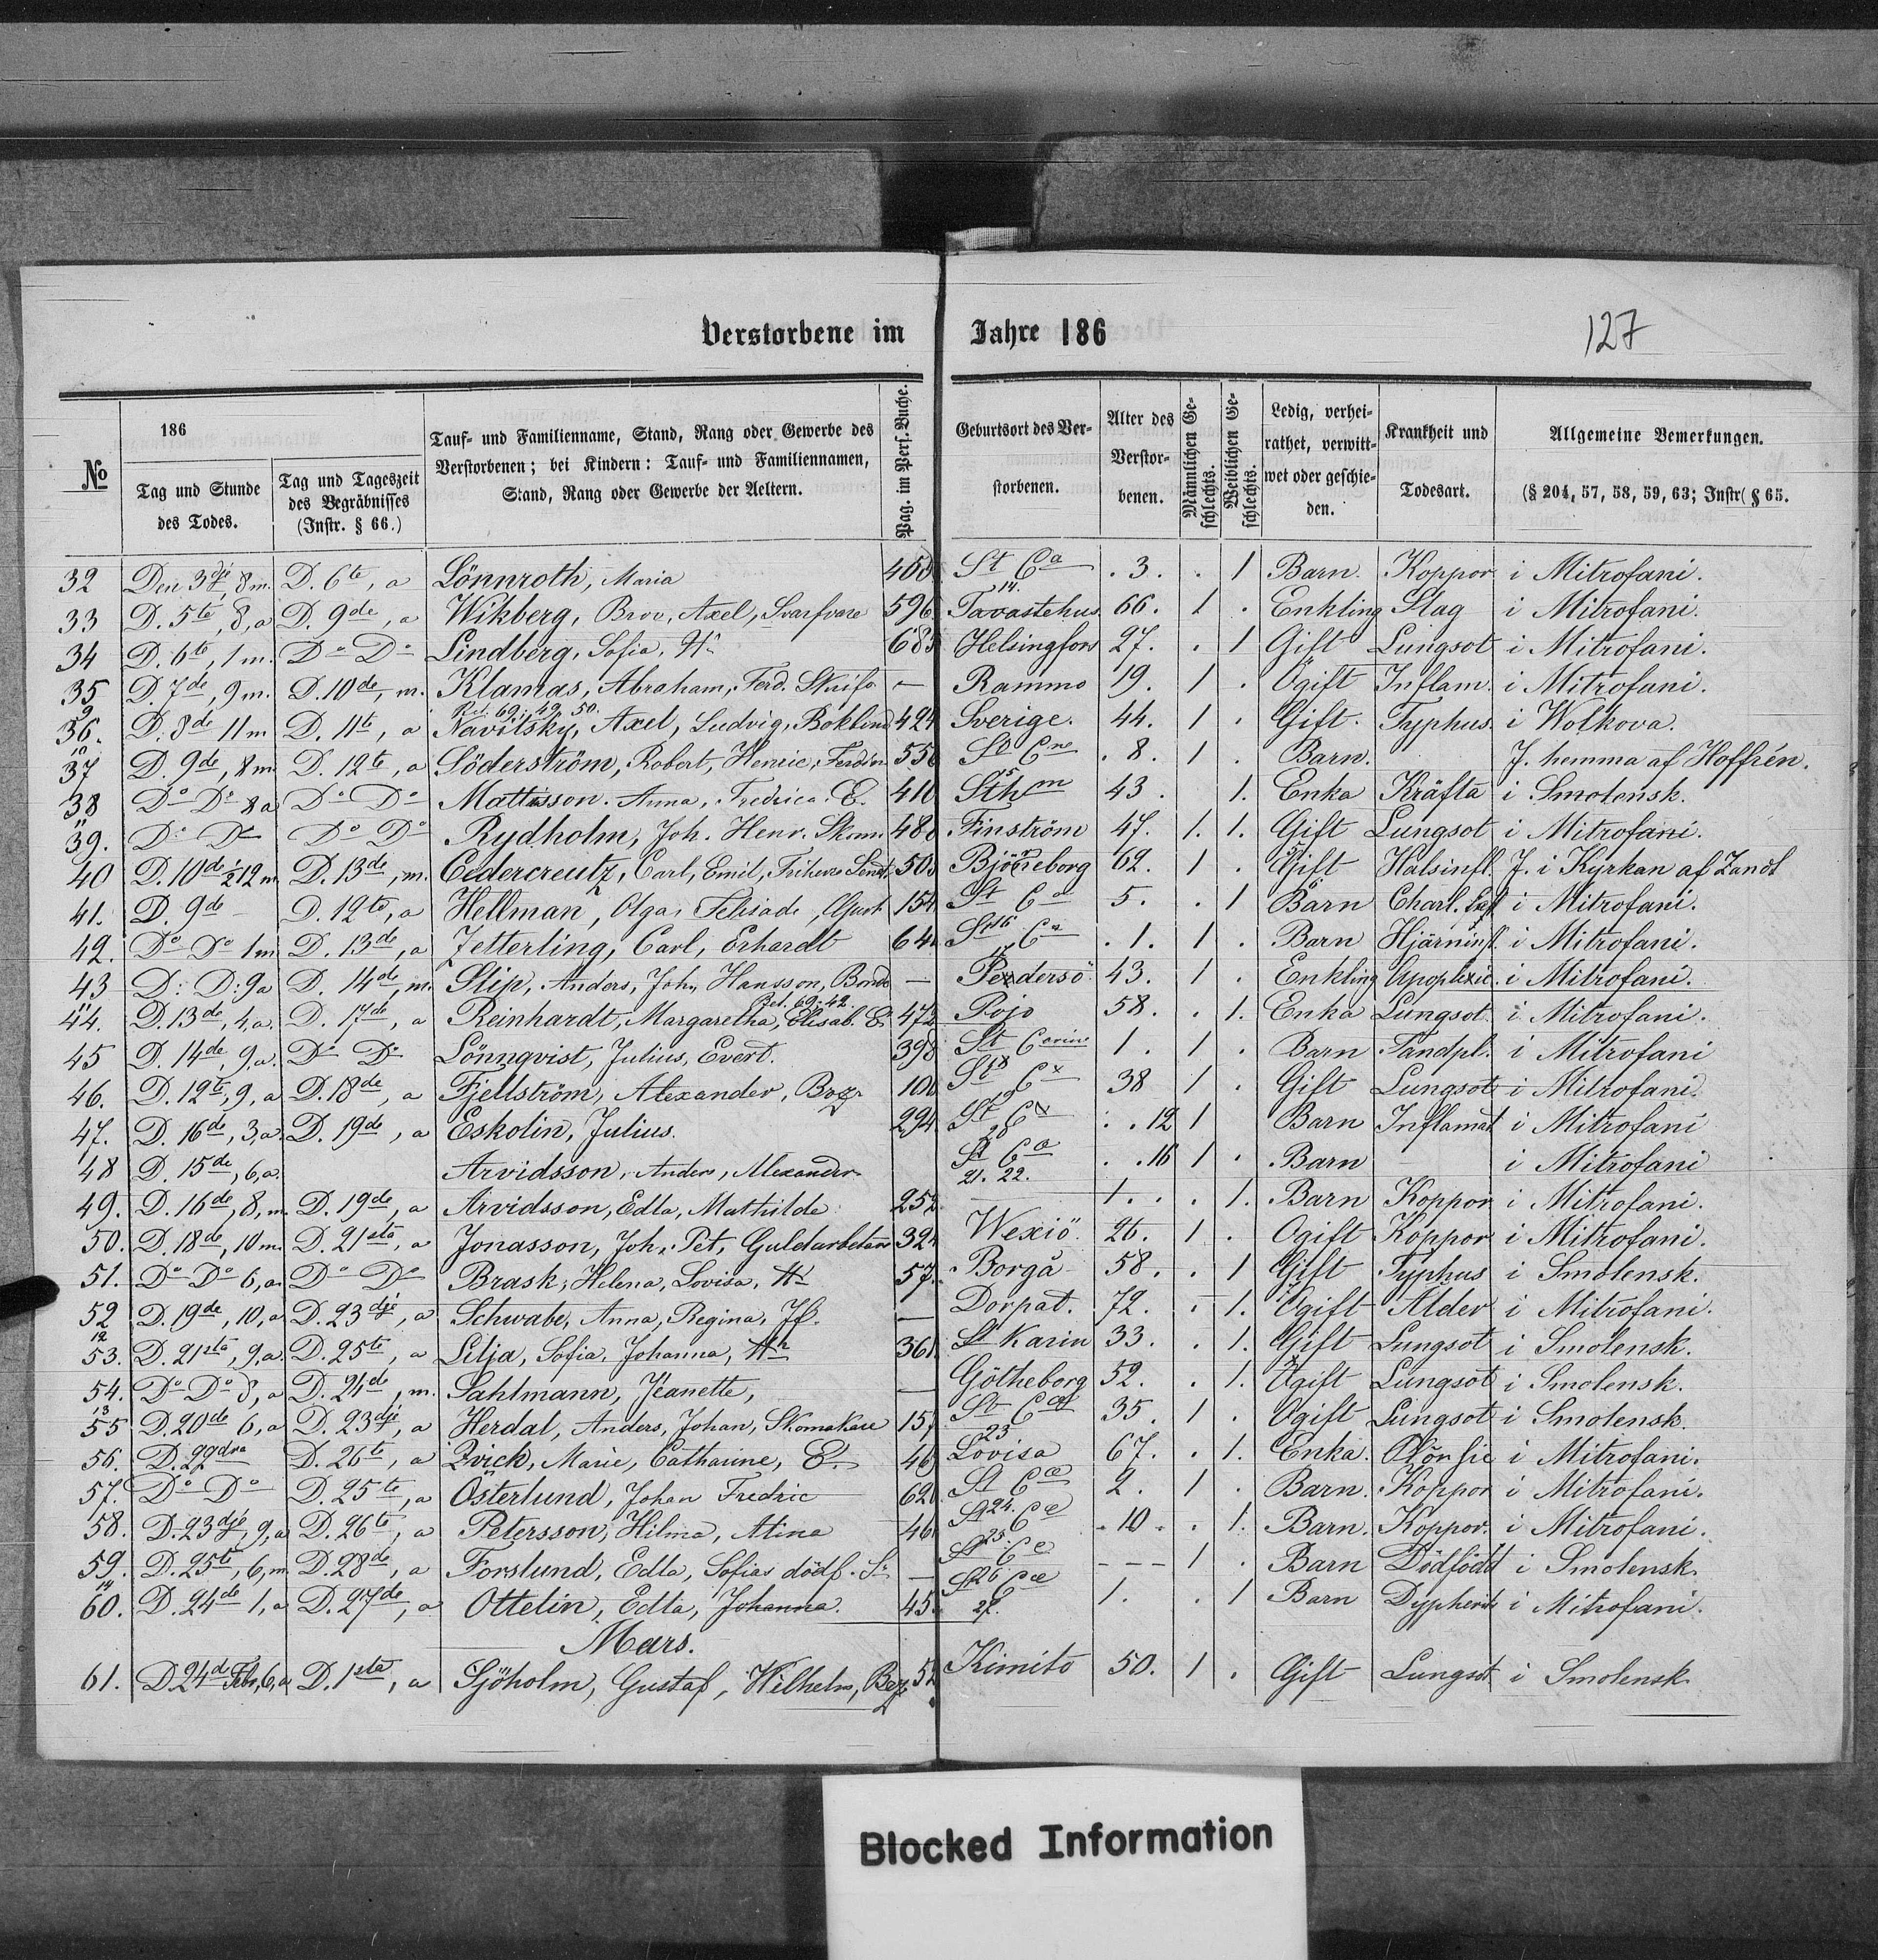 Verstorbene im Jahre 186
127
No
186
Tag und Stunde des Todes.
Tag und Tageszeit des Begräbnisses (Instr. § 66.)
Tauf- und Familienname, Stand, Rang oder Gewerbe des Verstorbenen; bei Kindern: Tauf- und Familiennamen, Stand, Rang oder Gewerbe der Aeltern.
Pag. im Pers. Buche.
Geburtsort des Verstorbenen.
Alter des Verstorbenen.
Männlichen Geschlechts.
Weiblichen Geschlechts.
Ledig, verheirathet, verwittwet oder geschieden.
Krankheit und Todesart.
Allgemeine Bemerkungen. (§ 204, 57, 58, 59, 63; Instr( § 65.
32 Den 3dje, 8 m. D. 6te, a Lönnroth, Maria St Ca .3. . 1 Barn. Koppor i Mitrofani.
33 D. 5te, 8, a D. 9de, a Wikberg, Axel, Svarfvare 596 14. Tavastehus. 66. 1 . Enkling Slag i Mitrofani.
34 D. 6te, 1 m. Do Do Lindberg, Sofia, 683 Helsingfors 27. . 1 Gift Lungsot i Mitrofani.
35 D. 7de, 9 m. D. 10de, m. Klamas, Abraham, Ferd. — Rammo 19. 1 . Ogift Inflam. i Mitrofani.
9 Ret. 69. 49. 50.
36. D. 8de 11 m D. 11te, a Navitsky, Axel, Ludvig, Bokbind 424 Sverige. 44. 1 . Gift. Typhus. i Wolkova.
10
37 D. 9de, 8 m. D. 12te, a Söderström, Robert, Henric, 550 St Cne .8. 1 . Barn. J. hemma af Hoffrén.
38 Do Do 8 a Do Do Mattsson. Anna, Fredrica. E. 410 15 Sthm 43. 1. Enka Kräfta i Smolensk.
11
39. Do Do Do Do Rydholm, Joh. Henr. Skom. 480 Finström 47. 1. 1. Gift Lungsot i Mitrofani.
40 D. 10de ½12 m D. 13de, m. Cedercreutz, Carl, Emil, 505 Björneborg 62. 1 . Gift Halsinfl. J. i Kyrkan af Zandt
41. D. 9de D. 12te, a Hellman, Olga, 154 St Ca 5. . 1 Barn i Mitrofani.
42. Do Do 1 m D. 13de, a Zetterling, Carl, Erhardt 64 St 16 Ca .1. 1 . Barn Hjärninfl. i Mitrofani.
43 D: D: 9 a D. 14de, m. Slip, Anders, Joh. Hansson, — Pedersö 43. 1 . Enkling Apoplexie. i Mitrofani.
11 Ret. 69. 42.
44. D. 13de, 4, a. D. 17de, a Reinhardt, Margaretha, Elisab. E. 472 Pojo 58. . 1. Enka Lungsot. i Mitrofani.
45 D. 14de, 9, a. Do Do Lönnqvist, Julius, Evert. 398 St Carin 1. 1 . Barn Tandpl. i Mitrofani
46. D. 12te, 9, a D. 18de, a Fjellström, Alexander, 18 38 1 . Gift Lungsot i Mitrofani.
47. D. 16de, 3, a. D. 19de, a Eskolin, Julius. 294 . . 12 1 Barn Inflamat i Mitrofani
48 D. 15de, 6, a. Arvidsson, Anders, Alexander. St Ca . . 16 1 . Barn i Mitrofani
21. 22.
49. D. 16de, 8, m. D. 19de, a Arvidsson, Edla, Mathilde 252 1. . . 1. Barn Koppor i Mitrofani.
50. D. 18de, 10 m. D. 21sta, a Jonasson, Joh. Pet, Guldarbetare 32 Wexiö. 26. 1 . Ogift Koppor i Mitrofani.
51. Do Do 6, a. Do Do Brask, Helena, Lovisa, 57. Borgå 58. . 1 Gift Typhus i Smolensk.
52 D. 19de, 10, a D. 23dje, a Schwabe, Anna, Regina, — Dorpat. 72. . 1. Ogift Ålder i Mitrofani.
12
53. D. 21sta, 9, a. D. 25te, a Lilja, Sofia, Johanna, 361. St Karin 33. . 1. Gift Lungsot i Smolensk.
54. Do Do 8, a D. 24de, m. Sahlmann, Jeanette, — Götheborg 52. . 1. Ogift Lungsot i Smolensk.
13
55 D. 20de 6, a D. 23dje, a Herdal, Anders, Johan, Skomakare 157 St Ca 35. 1 . Ogift Lungsot i Smolensk.
56. D. 22dra D. 26te, a Zvick, Marie, Catharine, E. 46 23 Lovisa 67. . 1. Enka. i Mitrofani.
57. Do Do D. 25te, a Österlund, Johan Fredric 62 St Cae 2. 1 . Barn. Koppor i Mitrofani.
58. D. 23dje, 9, a D. 26te, a Petersson, Hilma, Alina 46 St 24. Cae . 10 . . 1. Barn. Koppor. i Mitrofani.
59. D. 25te, 6, m. D. 28de, a Forslund, Edla, Sofias dödf. — 25 - - - 1 . Barn Dödfödd i Smolensk.
14
60. D. 24de 1, a D. 27de, a Ottelin, Edla, Johanna. 45 26 Cae 1. . 1 Barn i Mitrofani.
27.
Mars.
61. D. 24de Febr, 6, a D. 1sta, a Sjöholm, Gustaf, Wilhelm, 52 Kimito 50. 1 . Gift Lungsot i Smolensk
Blocked Information